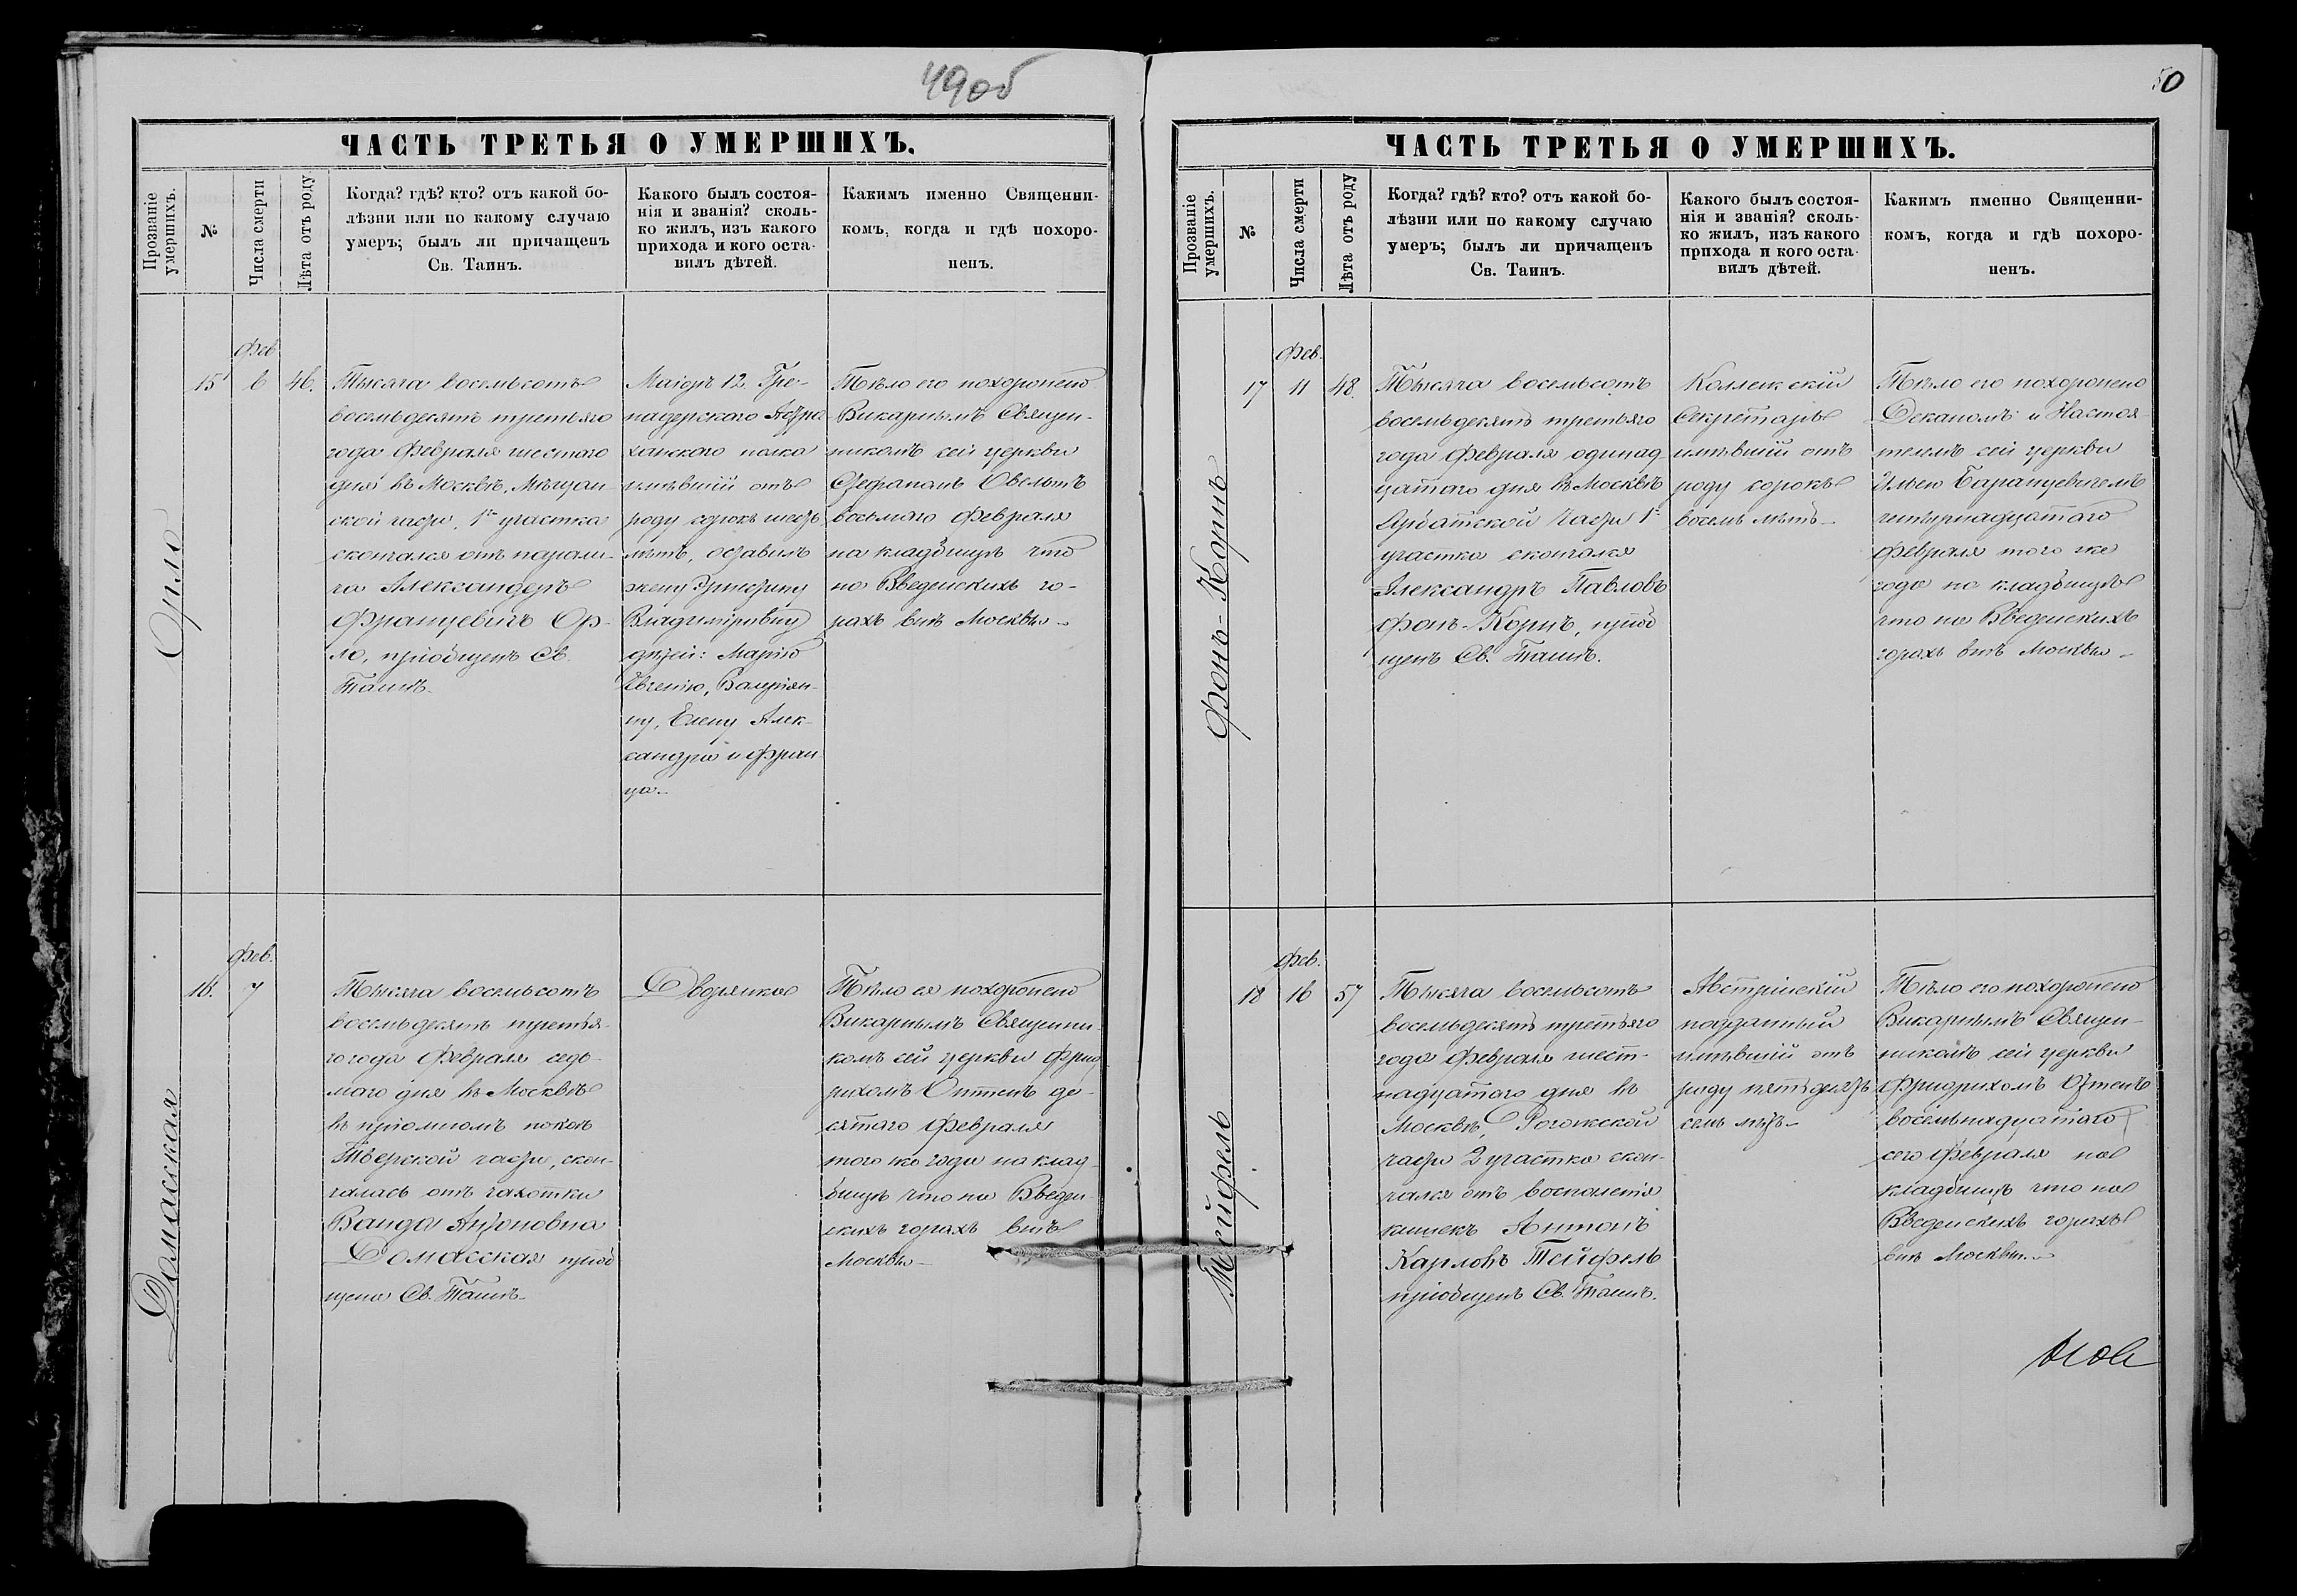 49об
ЧАСТЬ ТРЕТЬЯ О УМЕРШИХЪ.
Прозваніе умершихъ.
№
Числа смерти
Лѣта отъ роду
Когда? гдѣ? кто? отъ какой бо-
лѣзни или по какому случаю
умеръ; былъ ли причащенъ
Св. Таинъ.
Какого былъ состоя-
нія и званія? сколь-
ко жилъ, изъ какого
прихода и кого оста-
вилъ дѣтей.
Каким именно Священни-
комъ, когда и гдѣ похоро-
ненъ.
Орло
15
Фев
6
46.
Тысяча восемьсотъ
восемьдесятъ третьяго
года Февраля шестого
дня въ Москвѣ, Мѣщан
ской части, 1го участка
скончался отъ парали-
ча Александеръ
Францевичъ Ор-
ло, пріобщенъ Св.
Таинъ.
Маіоръ 12 Гре-
надерского Астра-
ханского полка
имѣвшій отъ
роду сорокъ шесть
лѣтъ, оставилъ
жену
Владимировну
дѣтей: Марію
Евгенію, Валріян-
ну, Елену Алек-
сандра и Фран
ца.-
Тѣло его похоронено
Викарнымъ Священ-
никомъ сей церкви
Стефаномъ Овельтъ
восьмаго Февраля
на кладбищѣ что
на Введенскихъ го-
рахъ внѣ Москвы.-
Домасская
16.
Фев.
7
Тысяча восемьсотъ
восемьдесятъ третья-
го года Февраля седь-
мого дня въ Москвѣ
въ пріомномъ покоѣ
Тверской части, скон-
чалась отъ чахотки
Ванда Антоновна
Домасская пріоб
щена Св. Таинъ.-
Дворянка
Тѣло ея похоронено
Викарнымъ Священни-
комъ сей церкви Фрид
рихомъ Оттенъ де-
сятого Февраля
того же года на клад-
бищѣ что на Введен-
скихъ горахъ внѣ
Москвы-
50
ЧАСТЬ ТРЕТЬЯ О УМЕРШИХЪ.
Прозваніе умершихъ.
№
Числа смерти
Лѣта отъ роду
Когда? гдѣ? кто? отъ какой бо-
лѣзни или по какому случаю
умеръ; былъ ли причащенъ
Св. Таинъ.
Какого былъ состоя-
нія и званія? сколь-
ко жилъ, изъ какого
прихода и кого оста-
вилъ дѣтей.
Каким именно Священни-
комъ, когда и гдѣ похоро-
ненъ.
Фонъ-Корнъ
17
Фев.
11
48.
Тысяча восемьсотъ
восемьдесятъ третьяго
года Февраля одинад
цатого дня въ Москвѣ
Арбатской части 1го
участка скончался
Александръ Павловъ
Фонъ-Корнъ, пріоб
щенъ Св. Таинъ.
Коллежскій
Секретарь
имѣвшій отъ
роду сорокъ
восемь лѣтъ-
Тѣло его похоронено
Деканомъ и Настоя-
телемъ сей церкви
Ильею Баранцевичемъ
четырнадцатого
Февраля того же
года на кладбищѣ
что на Введенскихъ
горахъ внѣ Москвы-
Тейфель
18
Фев.
16
57
Тысяча восемьсотъ
восемьдесятъ третьяго
года Февраля шест-
надцатого дня въ
Москвѣ, Рогожской
части 2 участка скон-
чался отъ воспаленія
кишекъ Антонъ
Карловъ Тейфель
пріобщенъ Св. Таинъ.
Австрійскій
подданный
имѣвшій отъ
роду пятьдесятъ
семь лѣтъ-
Тѣло его похоронено
Викарнымъ Священ-
никомъ сей церкви
Фридрихомъ Оттенъ
восемнадцатаго
сего Февраля на
кладбищѣ что на
Введенскихъ горахъ
внѣ Москвы.-